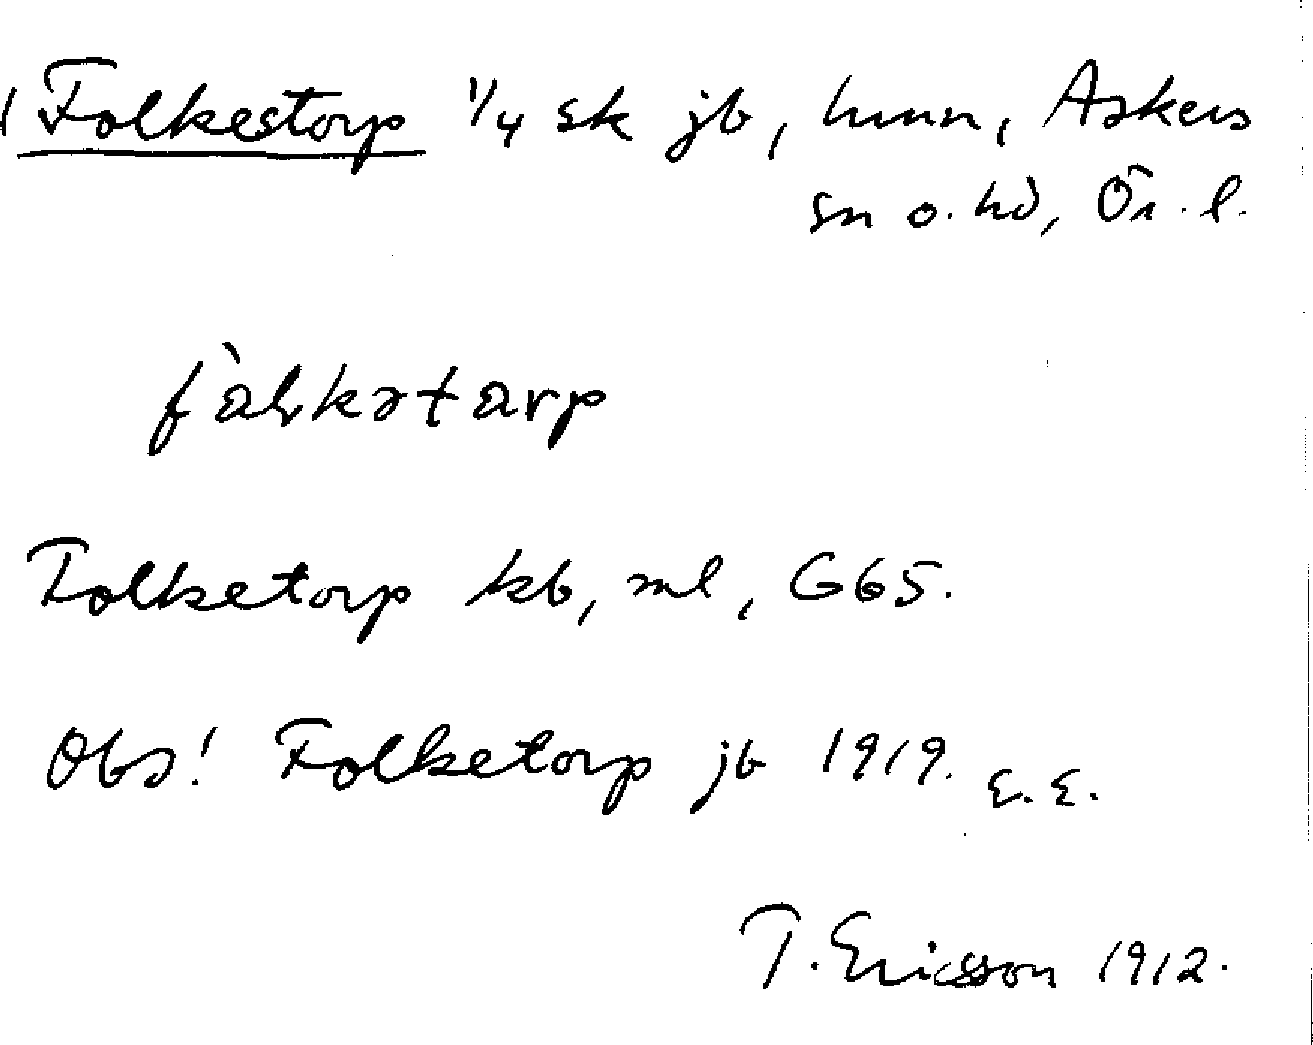 Folkestorp 1/4 sk jb, hmn, Askers
sn o. hd, Ör. l.
fàlkətarp
Folketorp kb, ml, G65.
Obs! Folketorp jb 1919. E.E.
T. Ericsson 1912.